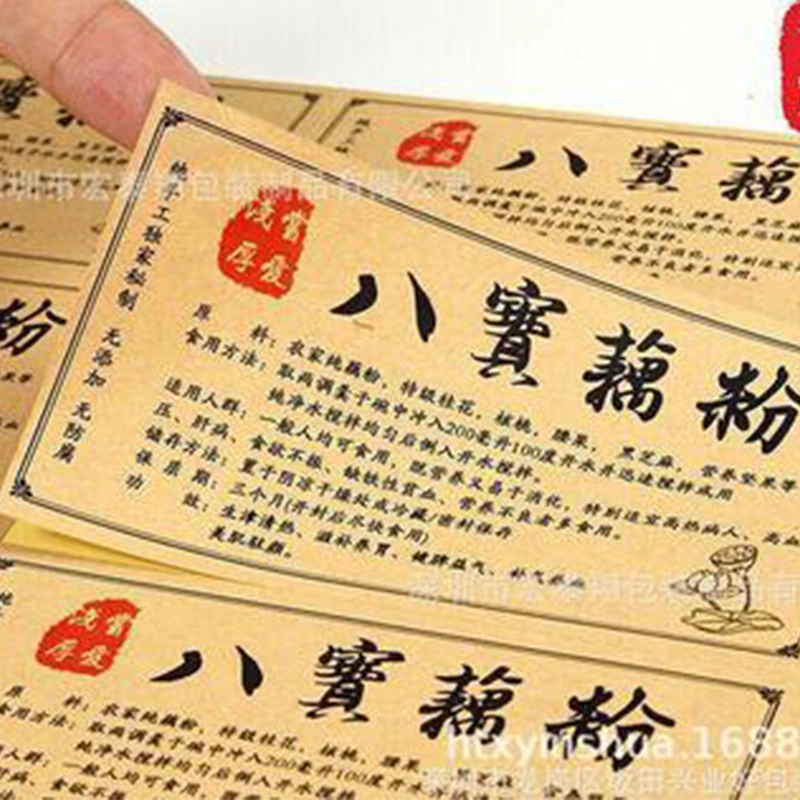 纯手工独家秘制 无添加 无防腐
浅尝厚爱
八寶藕粉
原 料：农家纯藕粉，特级桂花，核桃，腰果，黑芝麻，营养坚果等
食用方法：取两调羹于碗中冲入200毫升100度开水并迅速搅拌成用
纯净水搅拌均匀后倒入开水搅拌。
适用人群：一般人均可食用，既营养又易于消化，特别适宜高热病人、高血
压、肝病、食欲不振、缺铁性贫血、营养不良者多食用。
储存方法：置于阴凉干燥处或冷藏/密封保存
保 质 期：三个月(开封后尽快食用)
功 效：生津清热、滋补养胃、健脾益气、补气养血
美肌驻颜。
浅尝厚爱
八寶藕
核桃，腰果，黑芝麻
既营养又易于消化，特别适宜
营养不良者多食用。
粉
浅尝厚爱
八寶藕粉
原 料：农家纯藕粉，特级桂花，核桃，腰果
食用方法：取两调羹于碗中冲入200毫升100度开水
纯净水搅拌均匀后倒入开水搅拌。
一般人均可食用，既营养又易于消化
htxymshua.1688